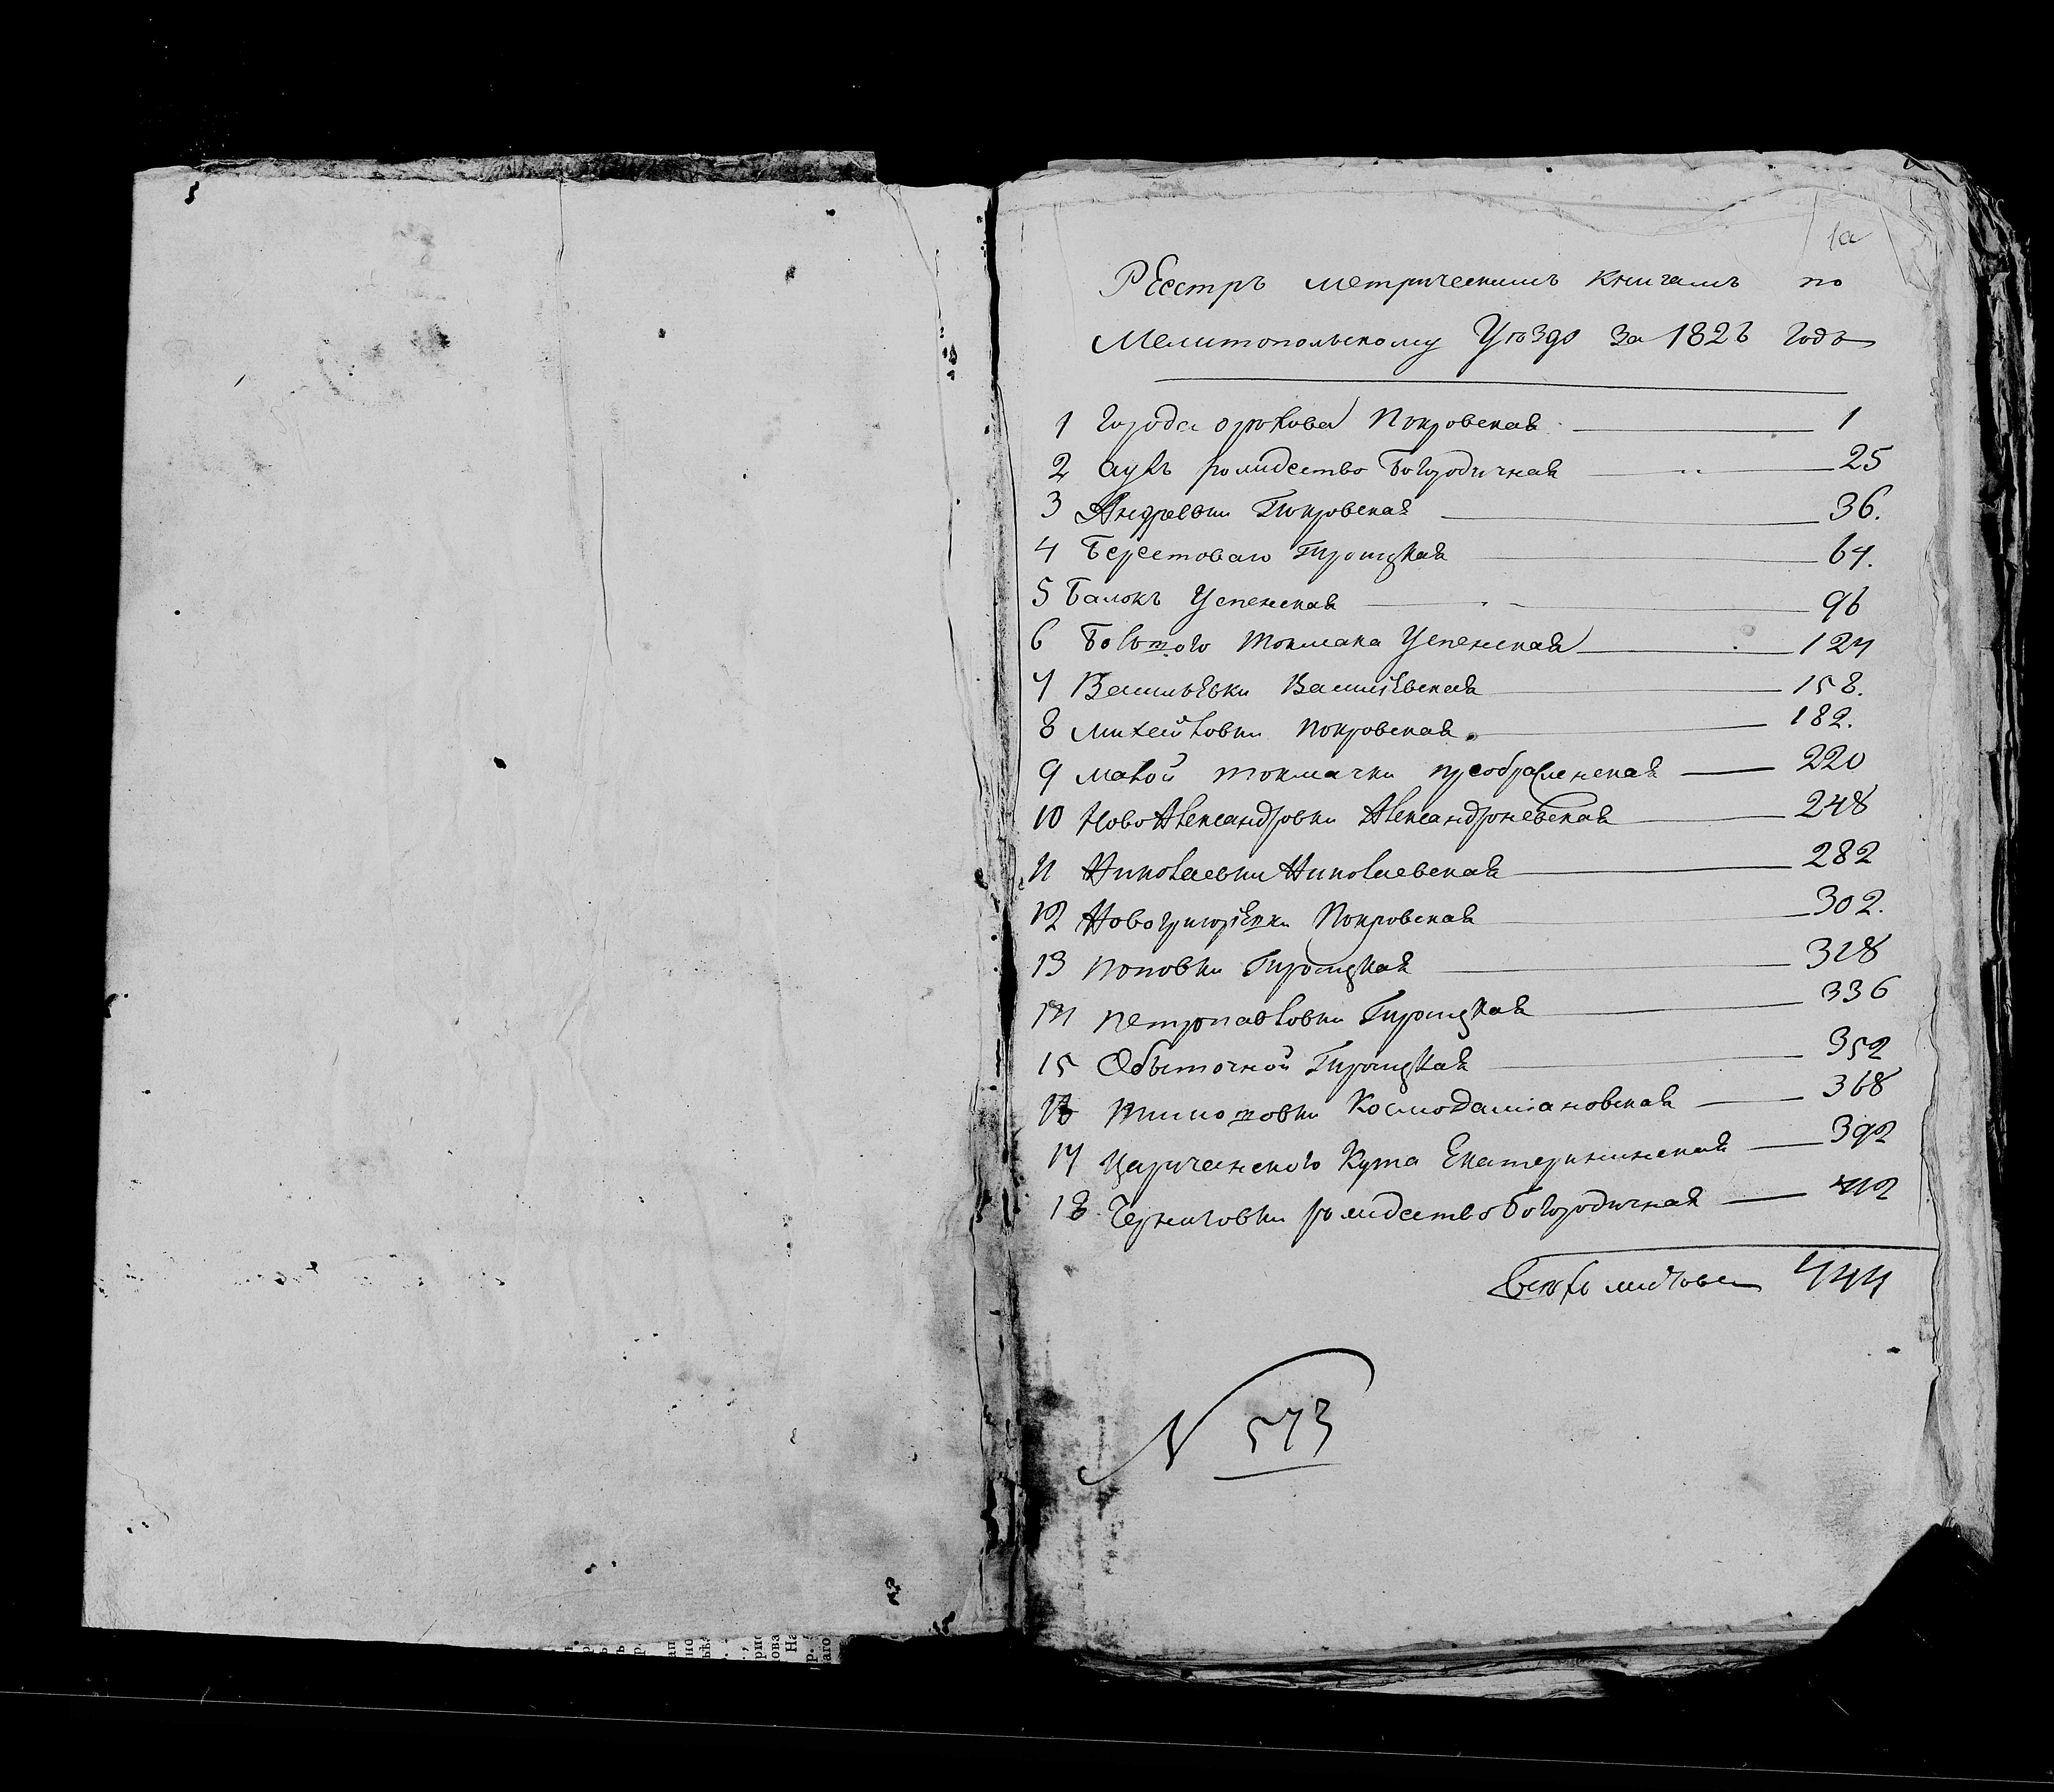 1а
РЕестръ метрическимъ книгамъ по
Мелитопольскому Уѣзду за 1826 годъ
1 Города орехова Покровская 1
2 Аулъ рождество Богородичная 25
3 Андреевки Покровская 36.
4 Берестоваго Троицкая 64.
5 Балокъ Успенская 96
6 Большого Токмака Успенская 124
7 Васильевки Василіевская 158.
8 михайловки покровская 182.
9 малой токмачки преображенская 220
10 НовоАлександровки Александроневская 248
11 Николаевки Николаевская 282
12 Новогригорієвки Покровская 302.
13 поповки Троицкая 328
14 петропавловки Троицкая 336
15 Обыточной Троицкая 352
16 тимошовки Космодаміановская 368
17 Царичанского Кута Екатерининская 392
18 Черниговки рождество Богородичная 412
всехъ листовъ 444
N 573